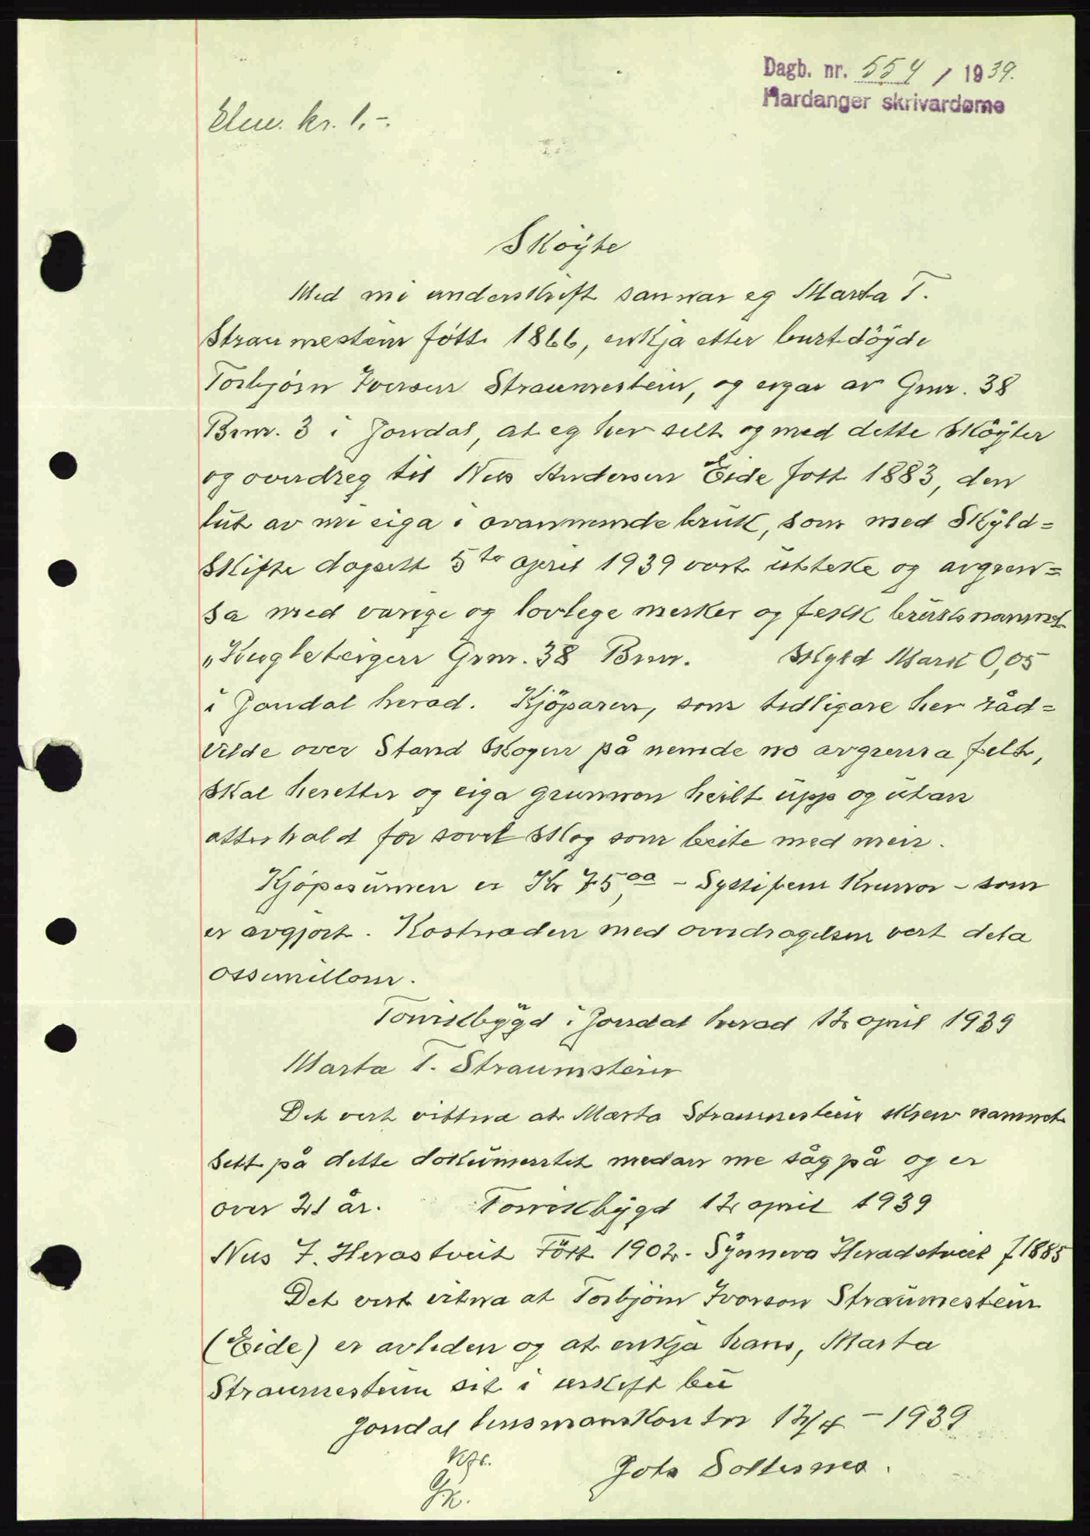 Dagb. nr. 554 / 1939.
Hardanger skrivardøme
kr. 1.-
Skøyte
Med mi underskrift sannar eg Marta T.
Straumestein føtt 1866, enkja etter burtdøyde
Torbjørn Iversen Straumestein, og eigar av Gnr. 38
Bnr. 3 i Jondal, at eg her selt og med dette skøyter
og overdreg til Nils Andersen Eide født 1883, den
lut av mi eiga i ovannemnde bruk, som med Skyld=
skifte dagsett 5te april 1939 vart utteke og avgren=
sa med varige og lovlege merker og fekk bruksnamnet
„Kugleteigen Gnr. 38 Bnr. Skyld Mark 0,05
i Jondal herad. Kjøparen, som tidligare her råd=
velde over Stand skogen på nemde no avgrensa felt,
skal heretter og eiga grunnen heilt upp og utan
atterhald for sovel skog som beite med meir.
Kjøpesumen er Kr 75,00 - Syttifem Kronor - som
er avgjort. Kostnaden med overdragelsen vert dela
ossimillom.
Torvikbygd i Jondal herad 12 april 1939
Marta T. Straumstein
Det vert vittna at Marta Straumestein skrev namnet
sitt på dette dokumentet medan me såg på og er
over 21 år. Torvikbygd 12 april 1939
Nils J. Herastveit Født 1902. Synneva Heradstveit f 1885
Det vert vitna at Torbjørn Ivarson Straumestein
(Eide) er avliden og at enkja hans, Marta
Straumestein sit i uskift bu
Jondal lensmanskontor 12/4 - 1939